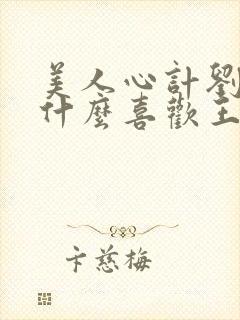 美人心計劉
什麼喜歡王
卞慈梅